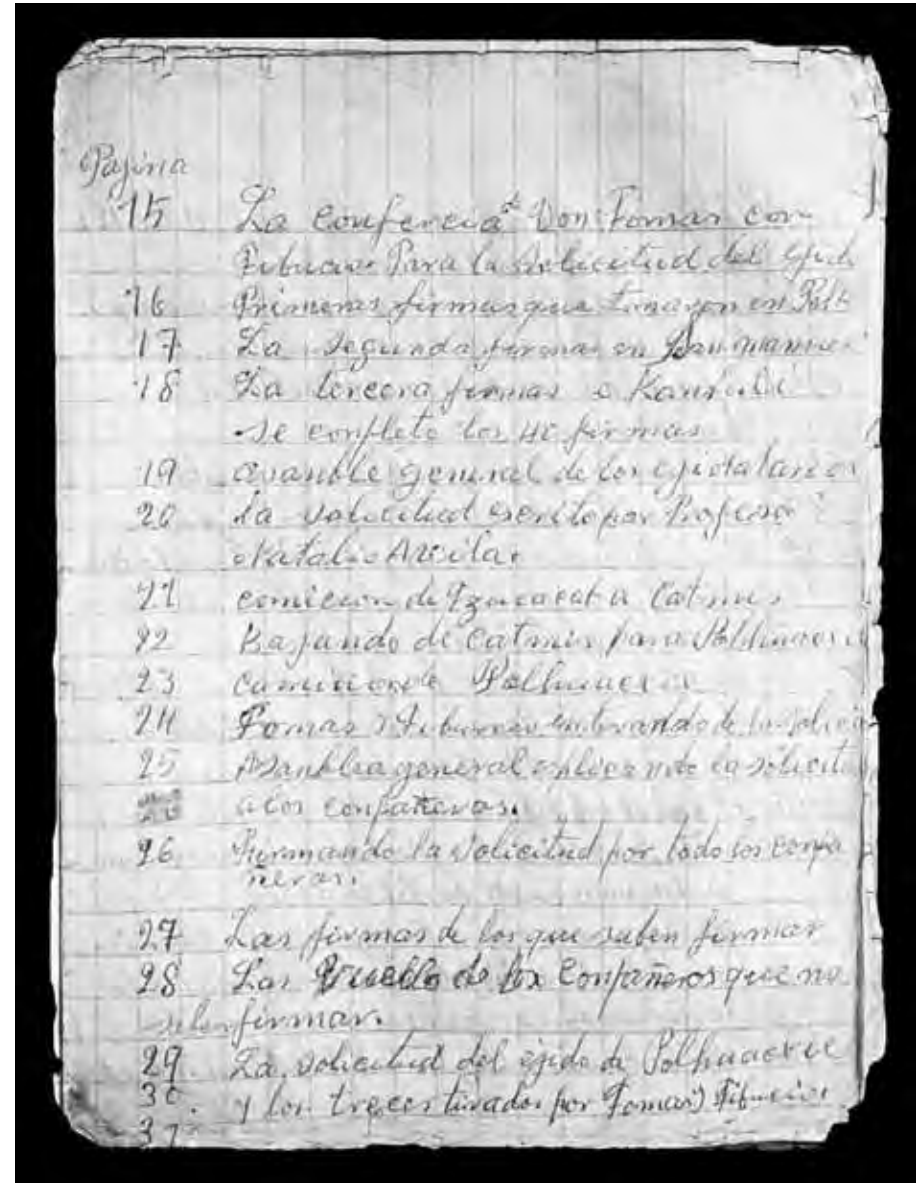 Pajina
15 La conferecia de Don: Tomas con
Tibucio Para la Solicitud del Ejid
16 Primeras firmas que tomaron en Polh
17 La Segunda firmas en San manuel
18 La tercera firmas
se conpleto los 40 firmas
19 general de los ejidatarios
20 la solicitud escrito por Profesor
Natalio Avila
21 comicion de a Catmis
22 Bajando de Catmis para Polhuacxil
23 Polhuacxil
24 Tomas y Tiburcio de la solici
25 Asanblea general esplicando la solicitu
a los conpañeros.
26 Firmando la solicitud por todo los conpa
ñeros.
27 Las firmas de los que saben firmar
28 Las de los Conpañeros que no
firmar.
29 La solicitud del ejido de Polhuacxil
30. y los por Tomas y Tibucio
31